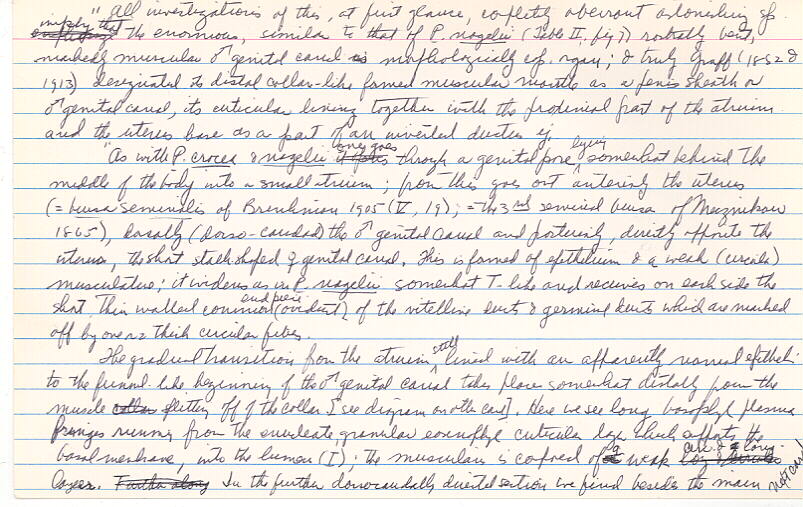 "All investigations of this, at first glance, completely aberrant astonishing sp.
imply that the enormous, similar to that of P. nagelii (Table II, fig 7) ventrally bent,
markedly muscular ♂ genital canal is morphologically esp. organ; & truly Graff (1882 &
1913) designated its distal collar-like formed muscular mantle as a penis sheath or
♂ genital canal, its cuticular lining together with the proximal part of the atrium
and the uterus base as a part of an inverted ductus ej.
"As with P. crocea & nagelii one goes through a genital pore lying somewhat behind the
middle of the body into a small atrium; from this goes out anteriorly the uterus
(= bursa seminalis of Brenkman 1905 (V, 19); = the 3rd seminal bursa of Mecznikow
1865), dorsally (dorso-caudad) the ♂ genital canal and posteriorly, directly opposite the
uterus, the short stalk shaped ♀ genital canal. This is formed of epithelium & a weak (circular)
musculature; it widens as in P. nagelii somewhat T-like and receives on each side the
short, thin walled common end piece (oviduct) of the vitelline ducts & germinal ducts which are marked
off by one or 2 thick circular fibers.
The gradual transition from the atrium still lined with an apparently normal epitheli
to the funnel-like beginning of the ♂ genital canal takes place somewhat distally from the
muscle splitting off of the collar [see diagram on other card]. Here we see long basophyl plasma
fringes running from the enucleate, granular eosinophyl cuticular layer which affronts the
basal membrane, into the lumen (I); the muscularis is composed of a weak circ. & a long.
layer. In the further dorsocaudally directed section we find beside the main
next card